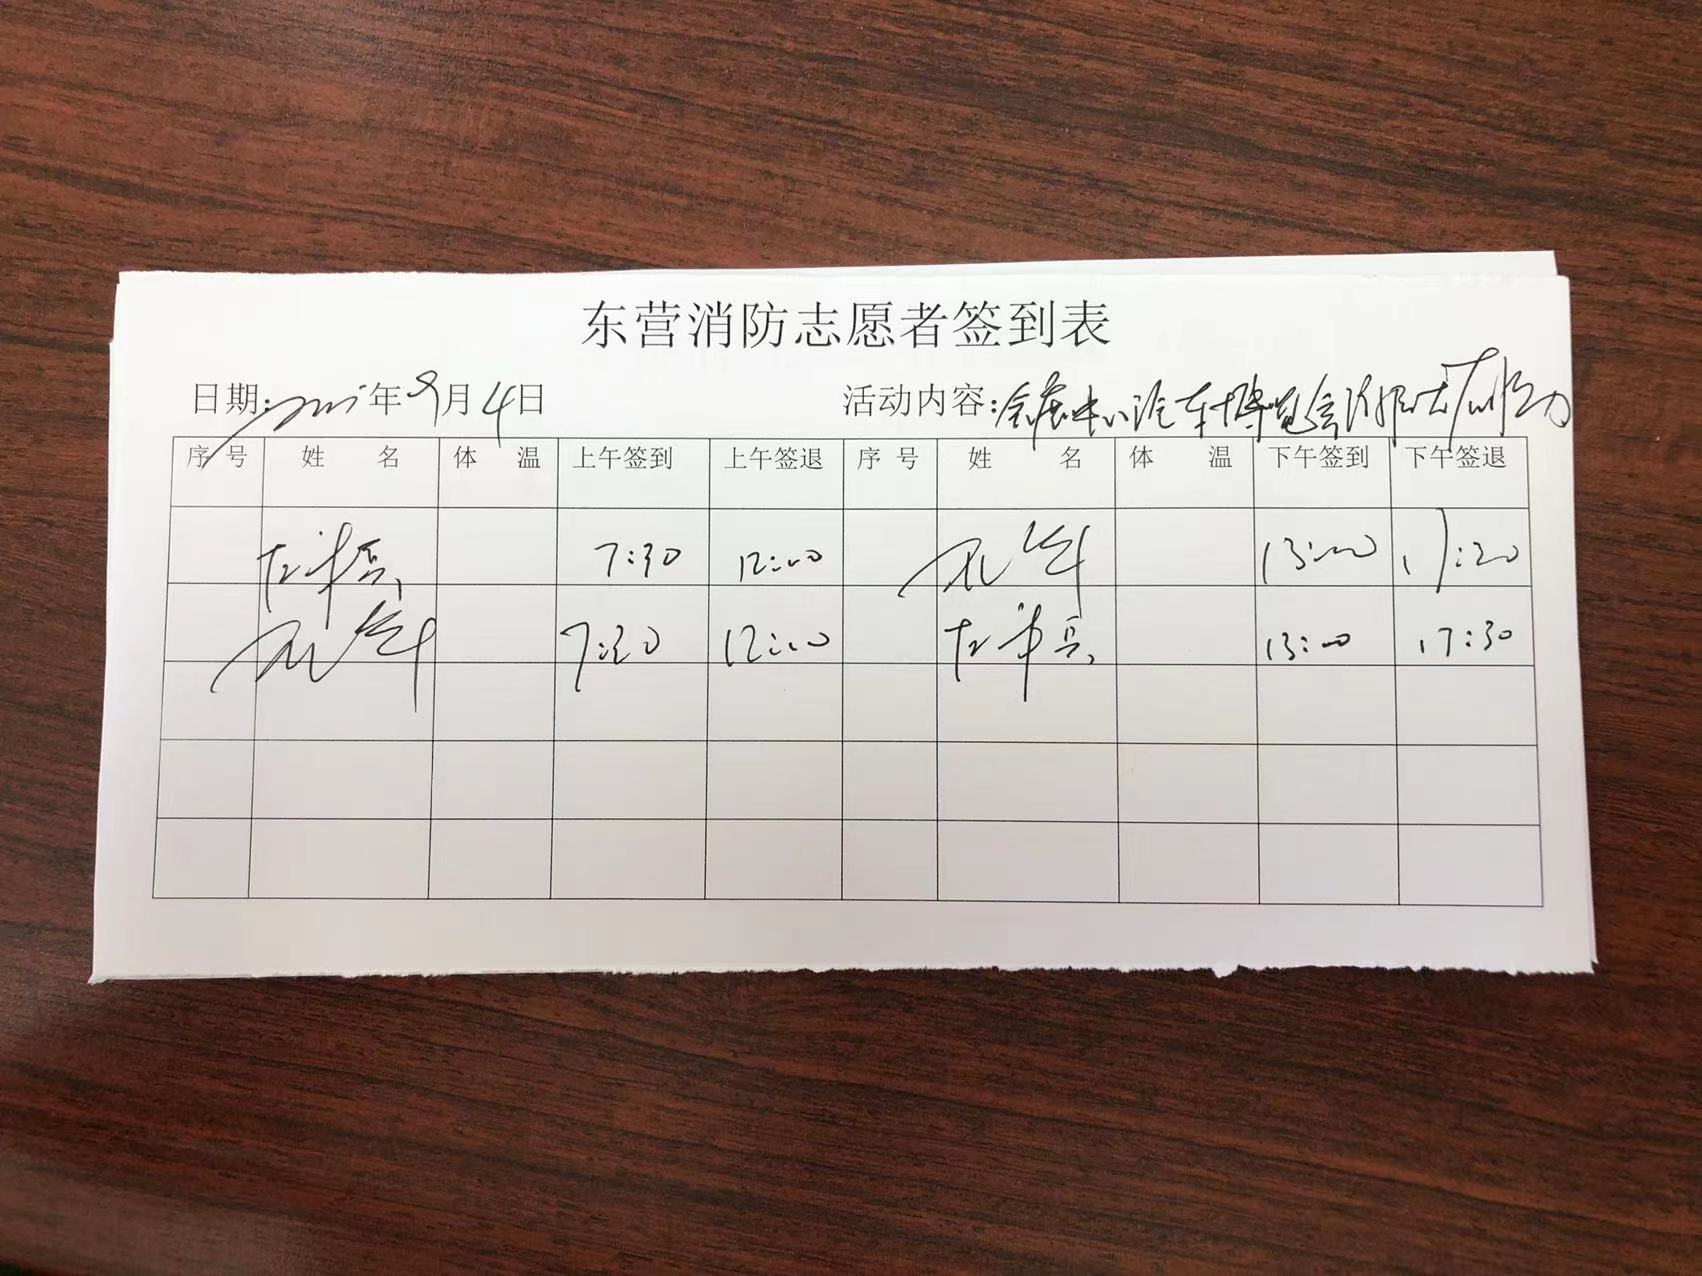 东营消防志愿者签到表
日期: 年9月4日 活动内容:会展中心汽车博览会消防志愿
序号 姓名 体温 上午签到 上午签退 序号 姓名 体温 下午签到 下午签退
7:30 12:00 13:00 17:30
7:30 12:00 13:00 17:30